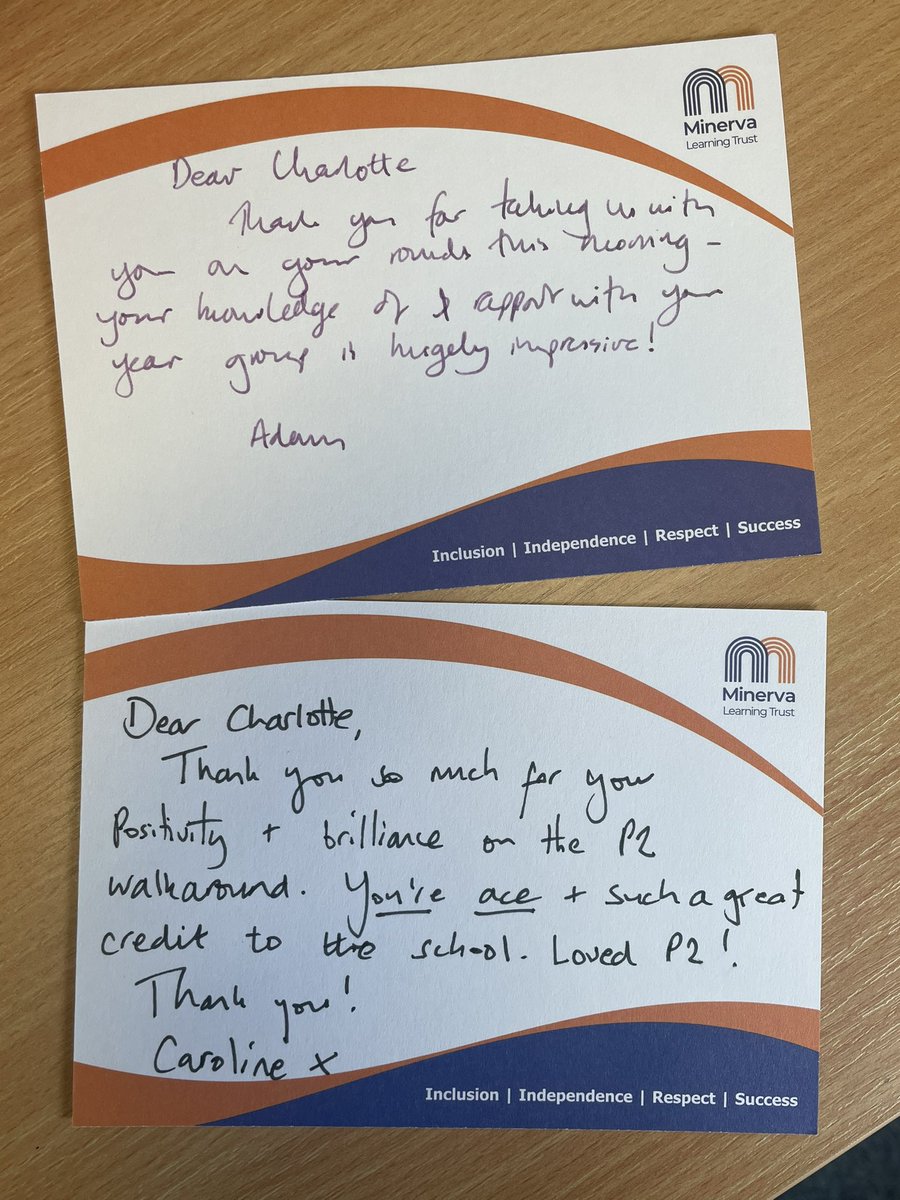 Minerva
Learning Trust
Dear Charlotte
Thank you for taking us with
you on your rounds this morning -
your knowledge of & rapport with your
year group is hugely impressive!
Adam
Inclusion | Independence | Respect | Success
Minerva
Learning Trust
Dear Charlotte,
Thank you so much for your
Positivity + brilliance on the P2
walkaround. You're ace + such a great
credit to the school. Loved P2!
Thank you!
Caroline x
Inclusion | Independence | Respect | Success